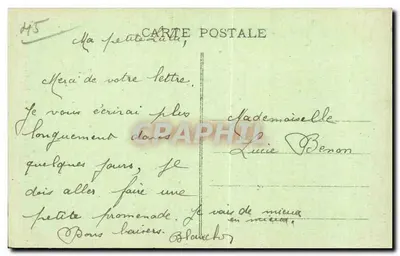 45
CARTE POSTALE
Ma petite
Merci de votre lettre.
Je vous écrirai plus
longuement dans
quelques jours, je
dois aller faire une
petite promenade. Je vais de mieux
en mieux.
Bons baisers.
Mademoiselle
Lucie Benon